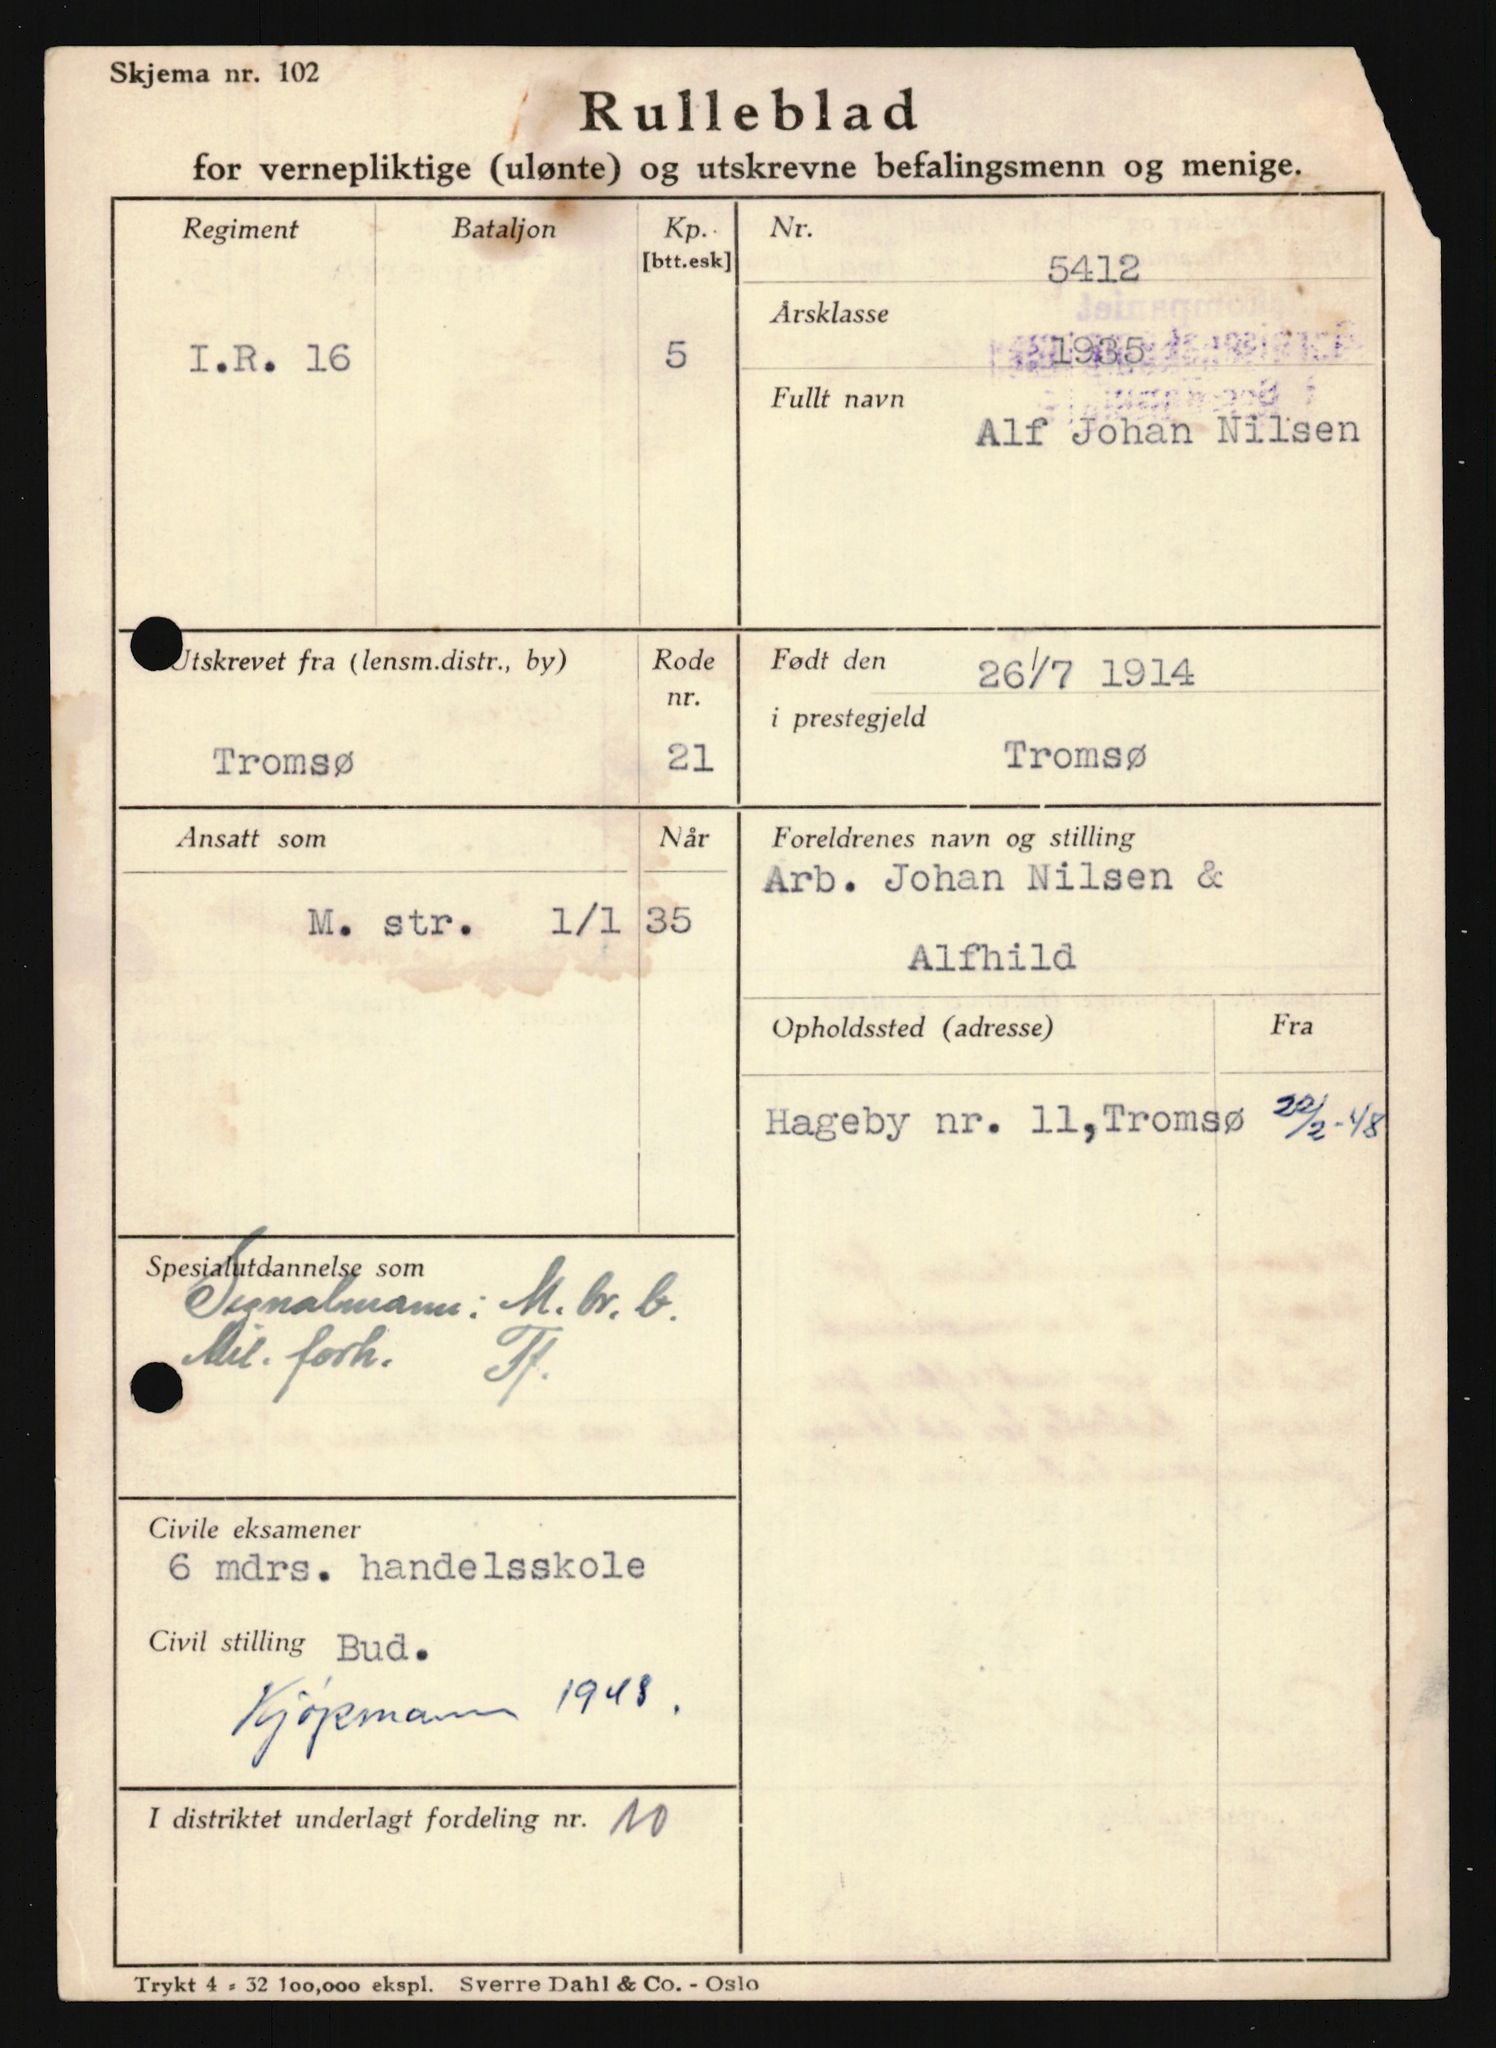 Skjema nr. 102
Rulleblad
for vernepliktige (ulønte) og utskrevne befalingsmenn og menige.
Regiment
Bataljon
Kp.
[btt.esk]
I.R. 16
5
Nr.
5412
Årsklasse
1935
Fullt navn
Alf Johan Nilsen
Utskrevet fra (lensm.distr., by)
Rode
nr.
Tromsø
21
Født den
26/7 1914
i prestegjeld
Tromsø
Ansatt som
Når
M. str. 1/1 35
Foreldrenes navn og stilling
Arb. Johan Nilsen &
Alfhild
Opholdssted (adresse)
Fra
Hageby nr. 11, Tromsø 20/2-48
Spesialutdannelse som
Signalmann: M. br. b.
Mil. forh. Tf.
Civile eksamener
6 mdrs. handelsskole
Civil stilling Bud.
Kjøpmann 1948.
I distriktet underlagt fordeling nr. 10
Trykt 4 - 32 100,000 ekspl. Sverre Dahl & Co. - Oslo